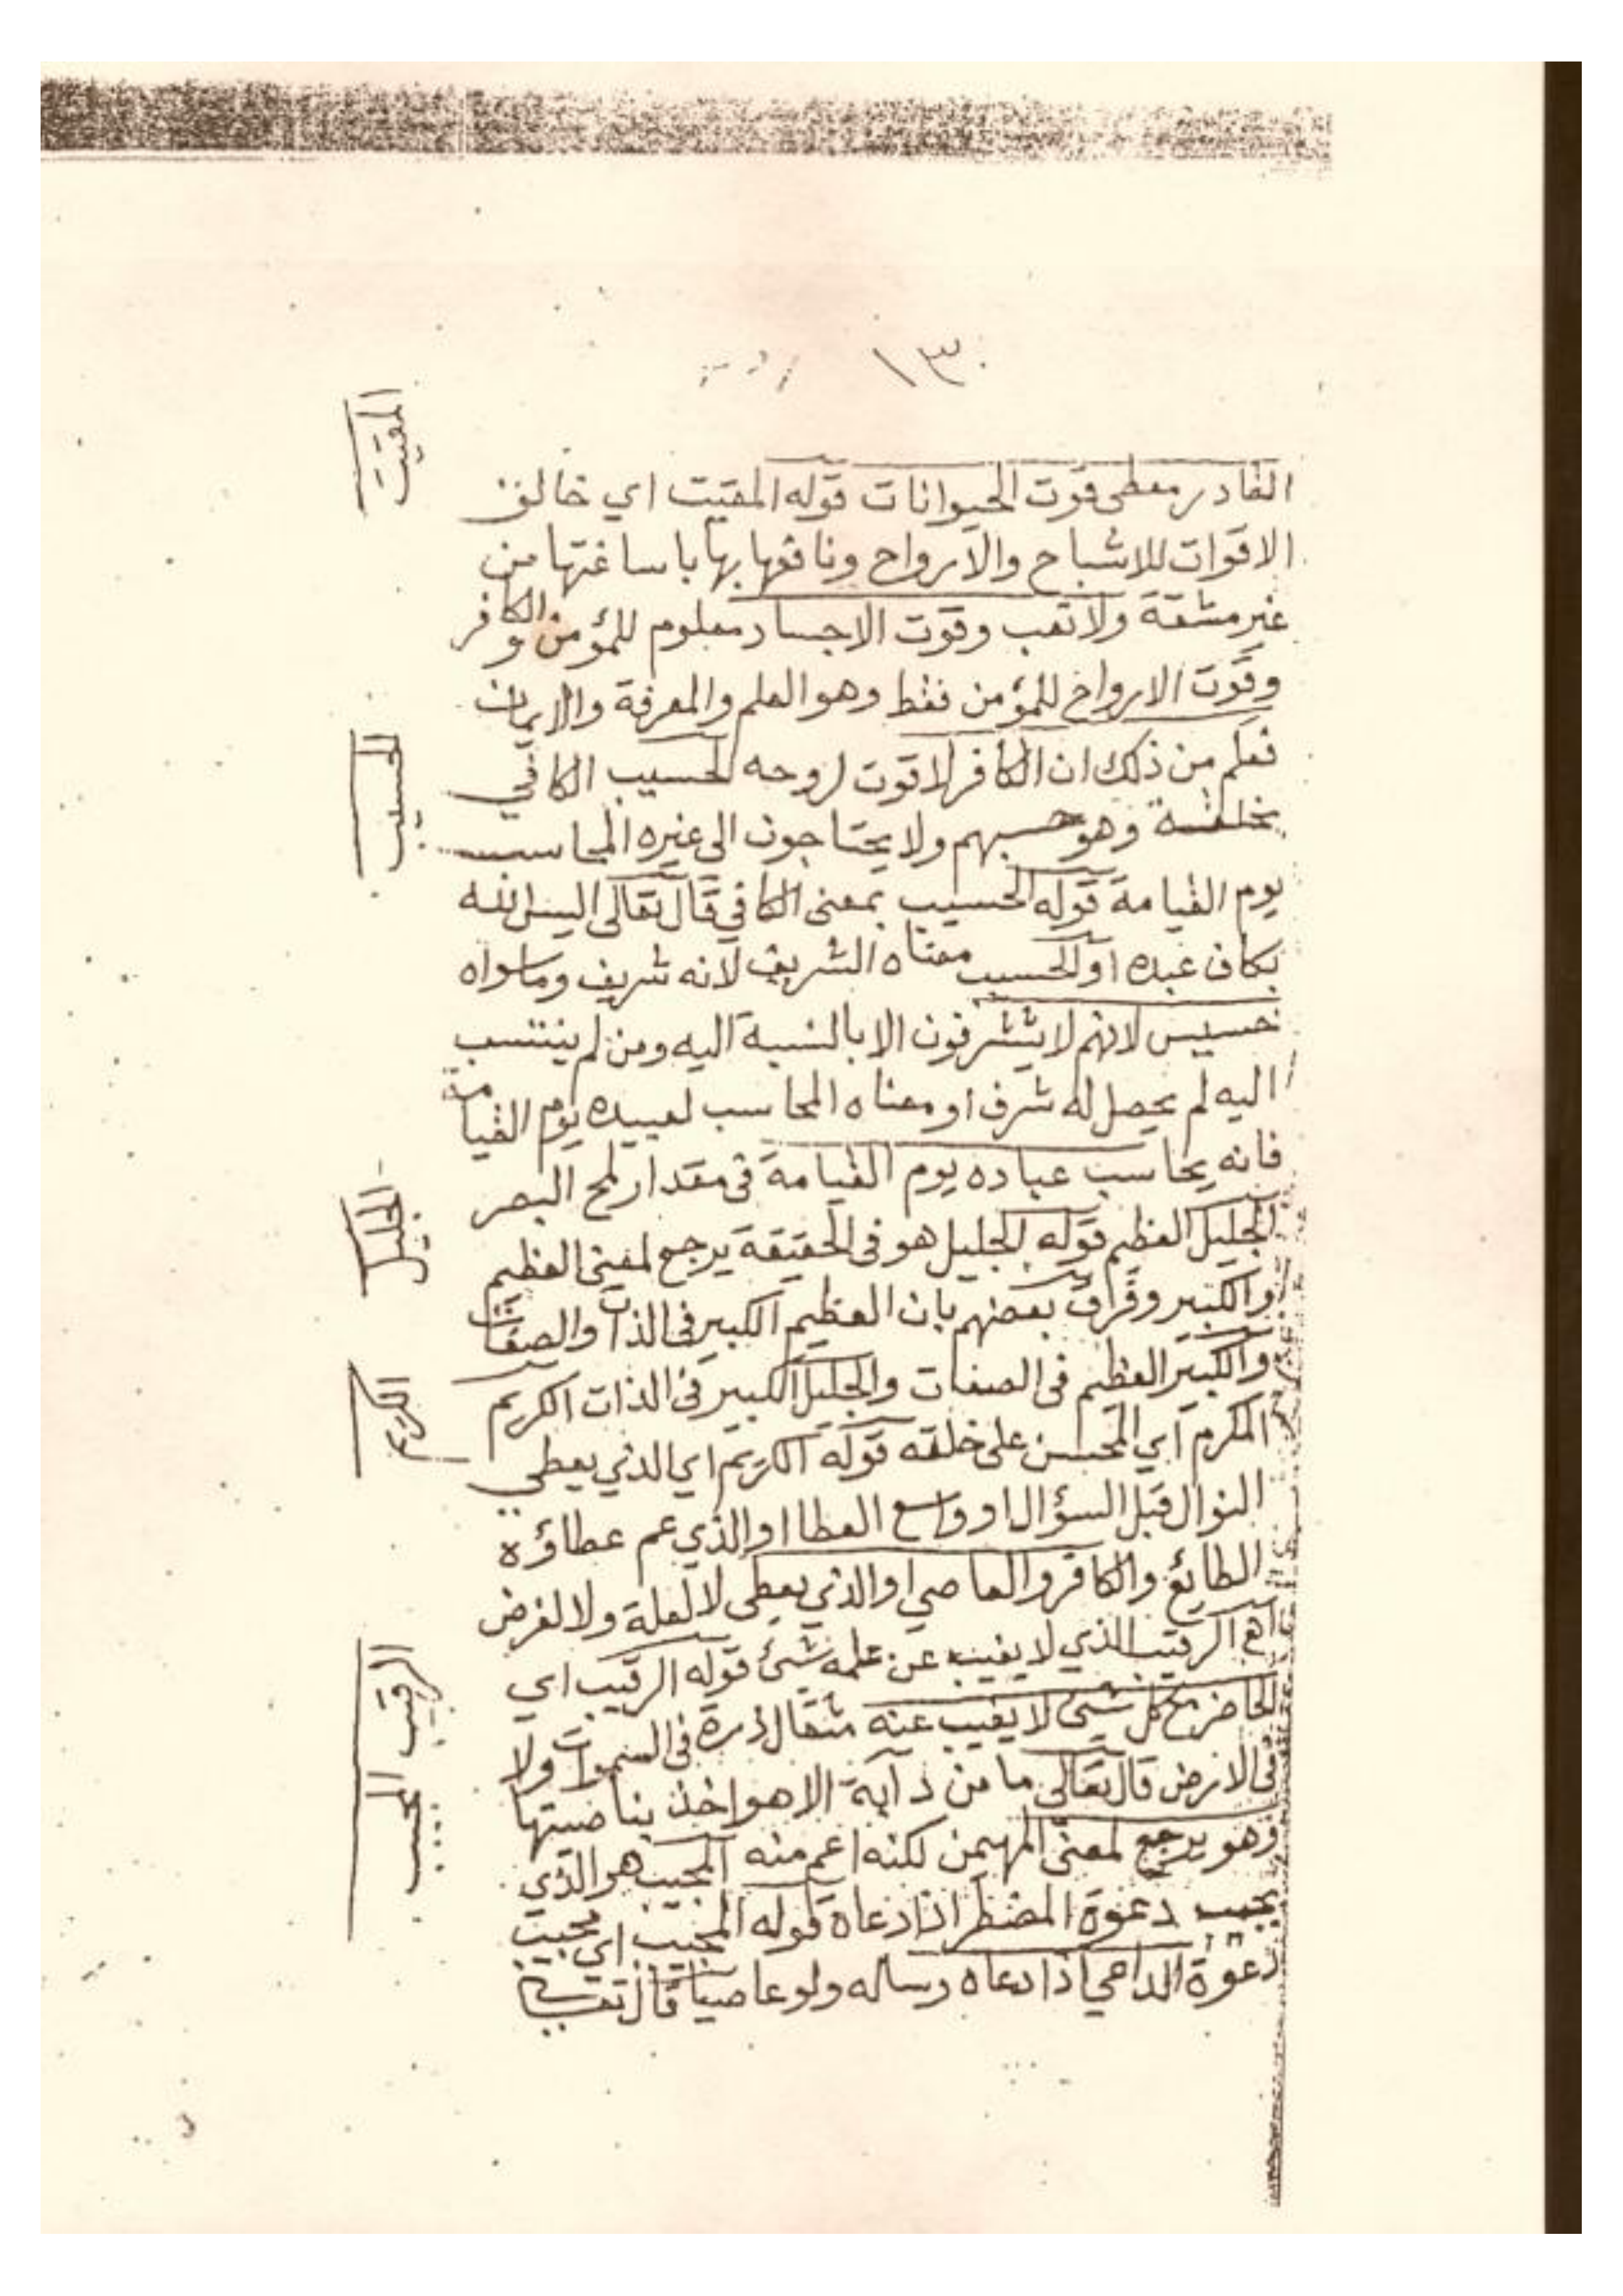 ١٣٠
القادر معطي قوت الحيوانات قوله المقيت اي خالق
الاقوات للاشباح والارواح ونافعها بها باساغتها من
غير مشقة ولا تعب وقوت الاجساد معلوم للمؤمن والكافر
وقوت الارواح للمؤمن فقط وهو العلم والمعرفة والايمان
فعلم من ذلك ان الكافر لا قوت لروحه الحسيب الكافي
بخلقه وهو حسبهم ولا يحتاجون الى غيره المحاسب
يوم القيامة قوله الحسيب بمعنى الكافي قال تعالى اليس الله
بكاف عبده او الحسيب معناه الشريف لانه شريف وما سواه
خسيس لانهم لا يتشرفون الا بالنسبة اليه ومن لم ينتسب
اليه لم يحصل له شرف او معناه المحاسب لعبيده يوم القيامة
فانه يحاسب عباده يوم القيامة فى مقدار لمح البصر
الجليل العظيم قوله الجليل هو فى الحقيقة يرجع لمعنى العظيم
والكبير وفرق بعضهم بان العظيم الكبير فى الذات والصفات
والكبير العظيم فى الصفات والجليل الكبير فى الذات الكريم
المكرم اي المحسن على خلقه قوله الكريم اي الذي يعطي
النوال قبل السؤال او واسع العطا او الذي عم عطاؤه
الطائع والكافر والعاصي او الذي يعطى لا لعلة ولا لغرض
اهـ الرقيب الذي لا يغيب عن علمه شئ قوله الرقيب اي
الحاضر مع كل شئ لا يغيب عنه مثقال ذرة فى السموات ولا
فى الارض قال تعالى ما من دآبة الا هو اخذ بناصيتها
وهو يرجع لمعنى المهيمن لكنه اعم منه المجيب هو الذي
يجيب دعوة المضطر اذا دعاه قوله المجيب اي يجيب
دعوة الداعي اذا دعاه وساله ولو عاصيا قال تعالى
المقيت
الحسيب
الجليل
الكريم
الرقيب
المجيب